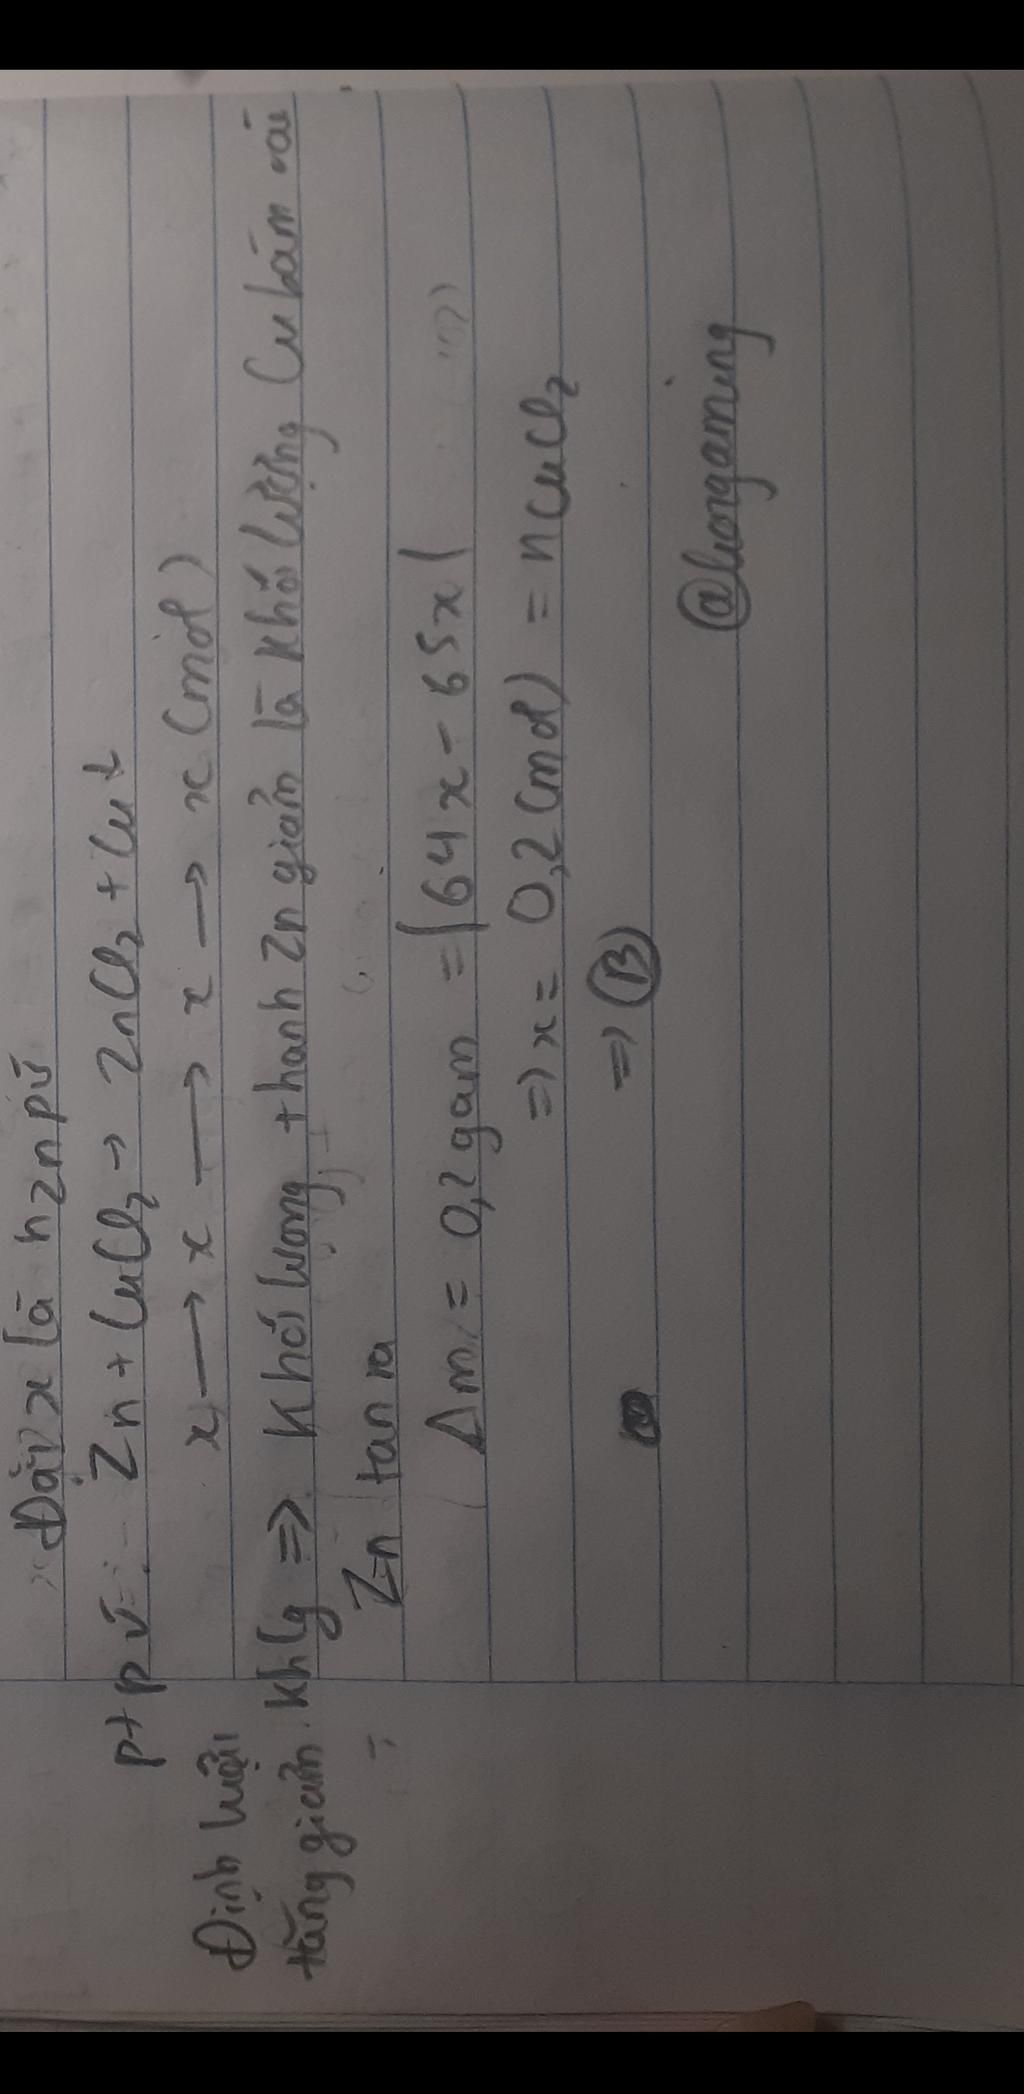 Đặt x là nZn pứ
ptpứ: Zn + CuCl2 → ZnCl2 + Cu↓
x → x → x → x (mol)
Định luật
tăng giảm khlg => Khối lượng thanh Zn giảm là khối lượng Cu bám vài
Zn tan ra
Δm = 0,2gam = |64x - 65x|
=> x = 0,2 (mol) = nCuCl2
=> B
@liongaming